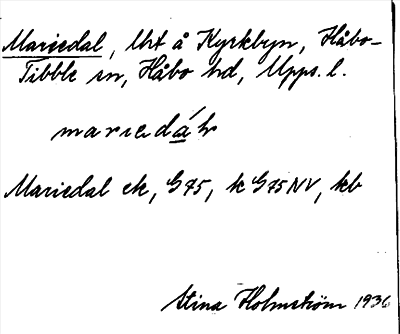 Mariedal, lht å Kyrkbyn, Håbo-
Tibble sn, Håbo hd, Upps. l.
Mariedal ek, G75, k G75NV, kb
Stina Holmström 1936